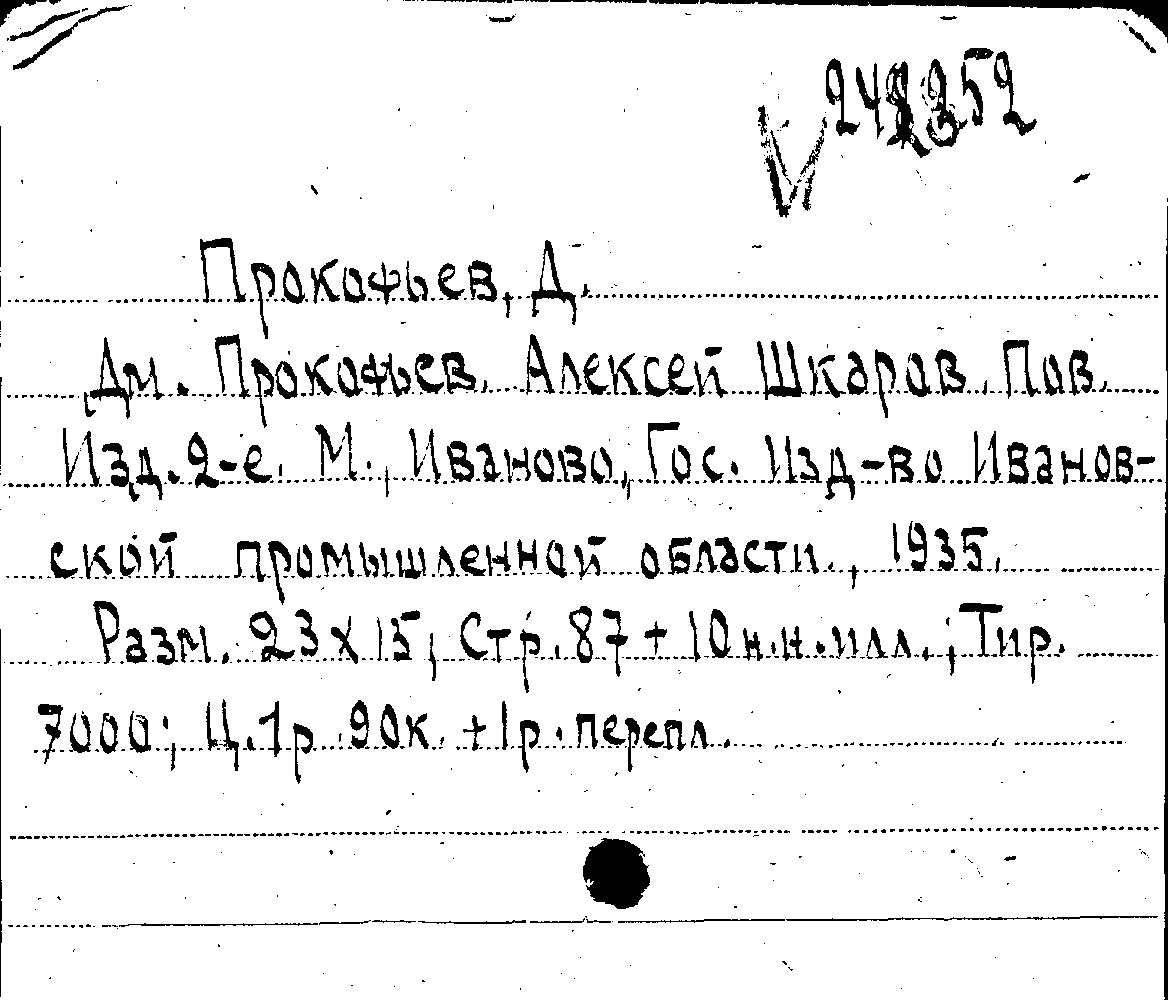 Прокофьев, Д.
Дм. Прокофьев. Алексей Шкаров. Пов.
Изд. 2-е. М., Иваново, Гос. Изд-во Иванов-
ской промышленной области., 1935.
Разм. 23х15; Стр. 87 + 10 н.н. илл.; Тир.
7000; Ц. 1р. 90к. + 1р. перепл.